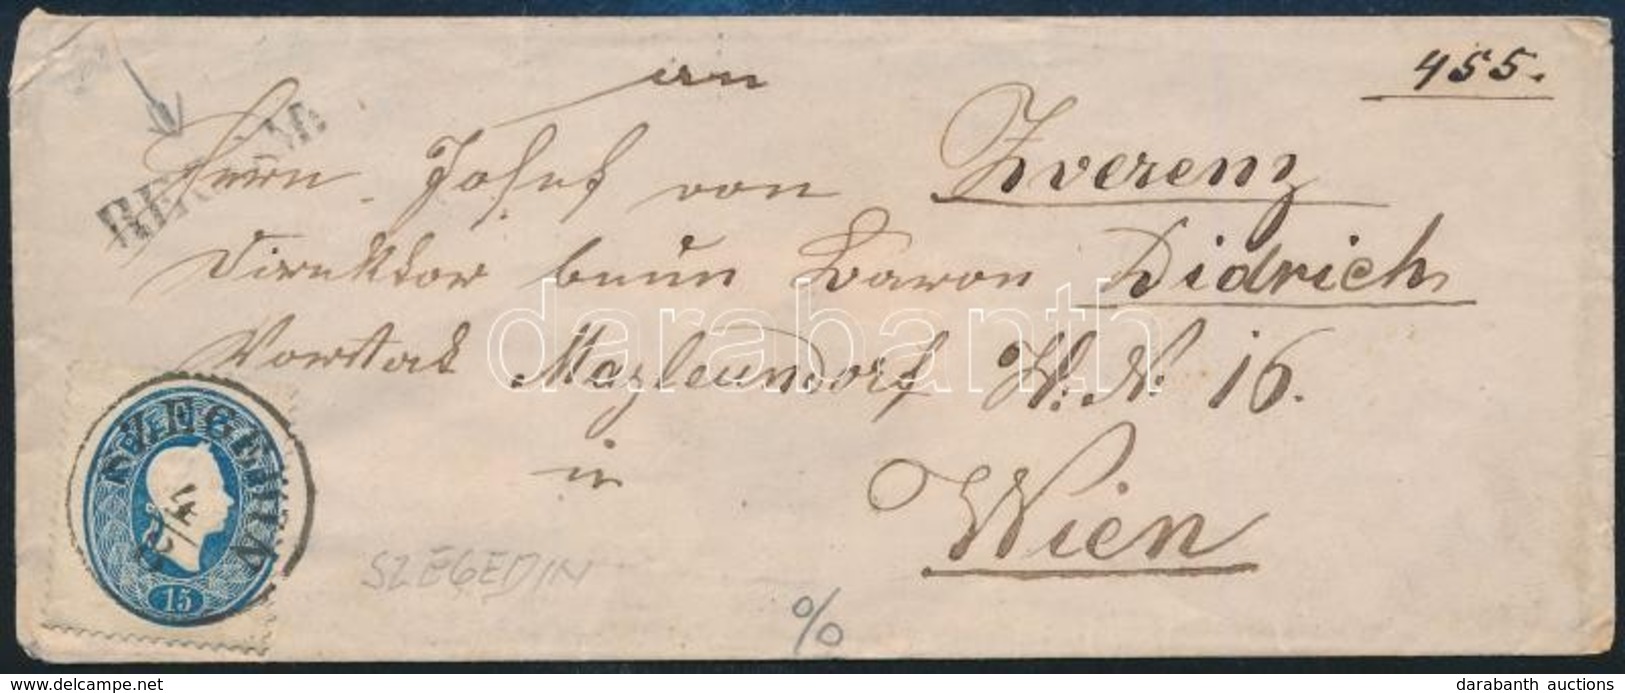 455.
an
RECOM:
Herrn Josef von Zverenz
Direktor beim Baron Didrich
Vorstad Mazleundorf H. N 16.
in
Wien
SZEGEDIN
14/2
15
SZEGEDIN
%
darabanth
www.delcampe.net
darabanth auctions